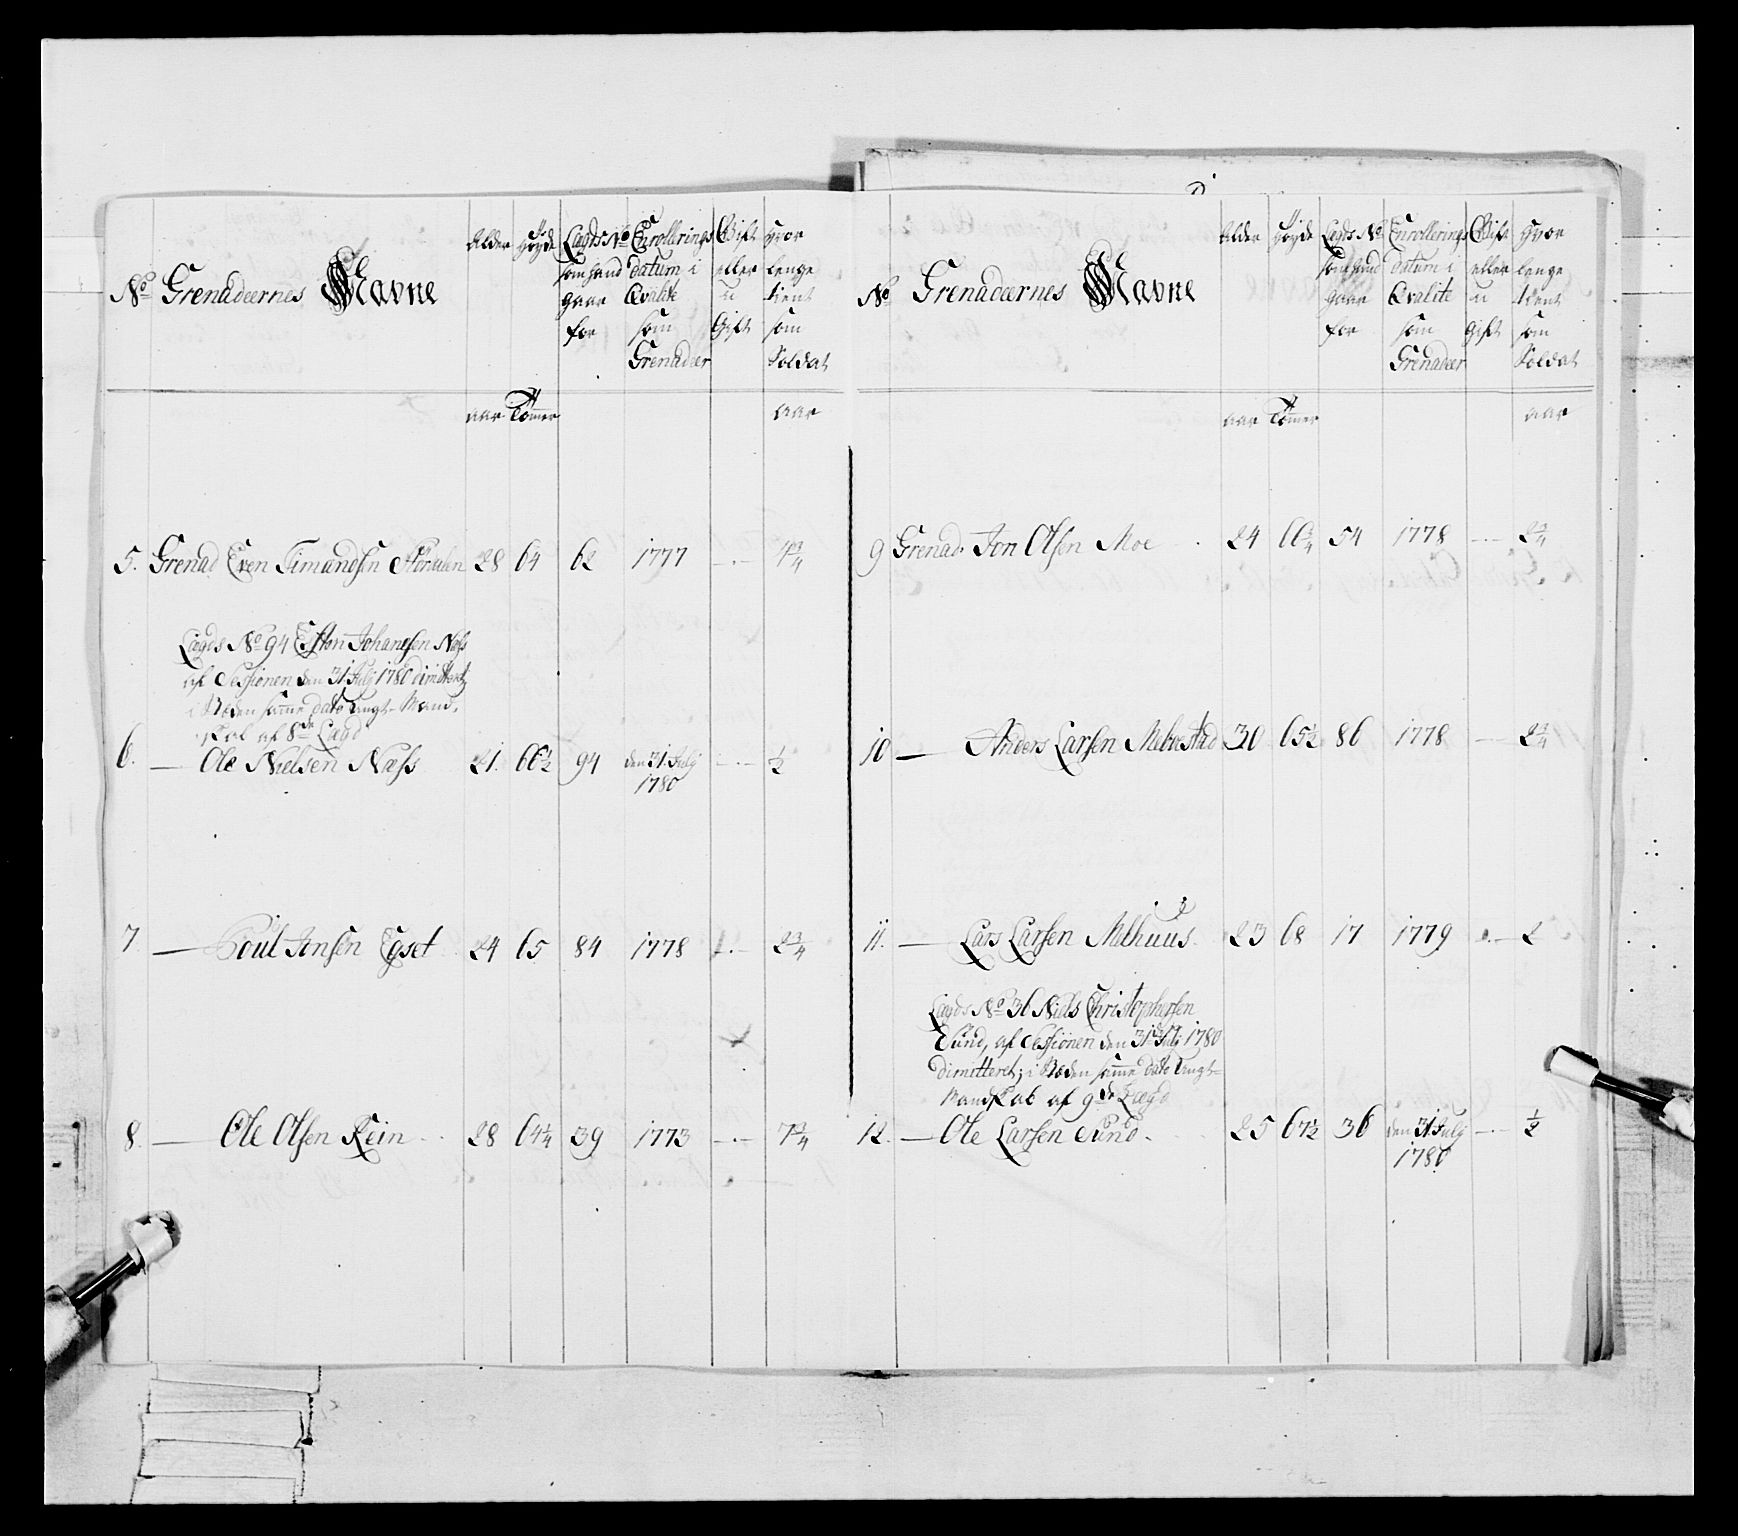 No Grenadeernes Navne
Alder
Høyde
Lægds No
som hand
gaar
for
Enrollerings
datum i
Qvalite
som
Grenadeer
Gift
eller
u
Gift
Hvor
lenge
tient
som
Soldat
aar Tommer aar
5. Grenad Even Simandsen 28 64 62 1777 -.- 4 3/4
Lægds No 94 Johansen Næss
af Sessionen den 31 Julj 1780 dimitteret,
i Steden samme dato Mand-
skab af 8de Lægd
6. — Ole Nielsen Næss 21. 66 1/2 94 den 31. Julj -.- 1/2
1780
7. — Poul Jonsen Egset 24 65 84 1778 -.- 2 3/4
8. — Ole Olsen Rein 28 64 1/4 39 1773 -.- 7 3/4
No Grenadeernes Navne
Alder
Høyde
Lægds No
som hand
gaar
for
Enrollerings
datum i
Qvalite
som
Grenadeer
Gift
eller
u
Gift
Hvor
lenge
tient
som
Soldat
aar Tommer aar
9 Grenad. Jon Olsen Moe 24 66 3/4 54 1778 -.- 2 3/4
10 — Anders Larsen 30 65 1/2 86 1778 -.- 2 3/4
11. — Lars Larsen Melhuus 23 68 17 1779 -.- 2
Lægds No 36 Niels Christophersen
Sund, af Sessionen den 31 Julj 1780
dimitteret; i Steden samme dato
Mandskab af 9de Lægd
12. — Ole Larsen Sund. 25 67 1/2 36 den 31 Julj -.- 1/2
1780